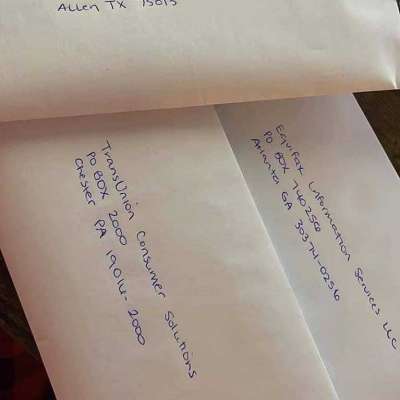 Allen TX 75013
TransUnion Consumer Solutions
PO BOX 2000
Chester PA 19016-2000
Equifax Information Services LLC
PO. BOX 740256
Atlanta GA 30374-0256